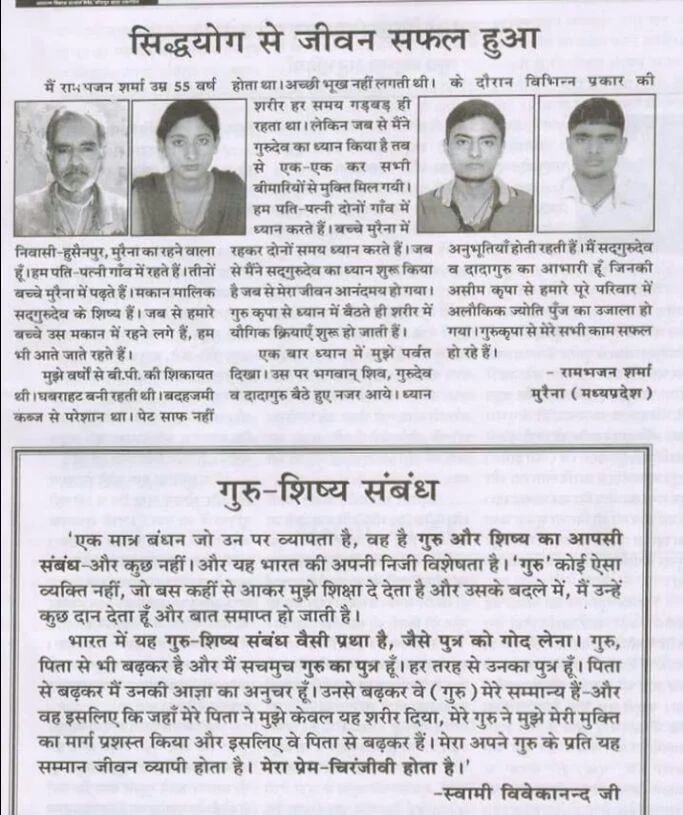 सिद्धयोग से जीवन सफल हुआ
मैं रामभजन शर्मा उम्र 55 वर्ष
निवासी-हुसैनपुर, मुरैना का रहने वाला
हूँ। हम पति-पत्नी गाँव में रहते हैं। तीनों
बच्चे मुरैना में पढ़ते हैं। मकान मालिक
सद्गुरुदेव के शिष्य हैं। जब से हमारे
बच्चे उस मकान में रहने लगे हैं, हम
भी आते जाते रहते हैं।
मुझे वर्षों से बी.पी. की शिकायत
थी। घबराहट बनी रहती थी। बदहजमी
कब्ज से परेशान था। पेट साफ नहीं
होता था। अच्छी भूख नहीं लगती थी।
शरीर हर समय गड़बड़ ही
रहता था। लेकिन जब से मैंने
गुरुदेव का ध्यान किया है तब
से एक-एक कर सभी
बीमारियों से मुक्ति मिल गयी।
हम पति-पत्नी दोनों गाँव में
ध्यान करते हैं। बच्चे मुरैना में
रहकर दोनों समय ध्यान करते हैं। जब
से मैंने सद्गुरुदेव का ध्यान शुरू किया
है जब से मेरा जीवन आनंदमय हो गया।
गुरु कृपा से ध्यान में बैठते ही शरीर में
यौगिक क्रियाएँ शुरू हो जाती हैं।
एक बार ध्यान में मुझे पर्वत
दिखा। उस पर भगवान् शिव, गुरुदेव
व दादागुरु बैठे हुए नजर आये। ध्यान
के दौरान विभिन्न प्रकार की
अनुभूतियाँ होती रहती हैं। मैं सद्गुरुदेव
व दादागुरु का आभारी हूँ जिनकी
असीम कृपा से हमारे पूरे परिवार में
अलौकिक ज्योति पुँज का उजाला हो
गया। गुरुकृपा से मेरे सभी काम सफल
हो रहे हैं।
- रामभजन शर्मा
मुरैना ( मध्यप्रदेश )
गुरु-शिष्य संबंध
'एक मात्र बंधन जो उन पर व्यापता है, वह है गुरु और शिष्य का आपसी
संबंध-और कुछ नहीं। और यह भारत की अपनी निजी विशेषता है। 'गुरु' कोई ऐसा
व्यक्ति नहीं, जो बस कहीं से आकर मुझे शिक्षा दे देता है और उसके बदले में, मैं उन्हें
कुछ दान देता हूँ और बात समाप्त हो जाती है।
भारत में यह गुरु-शिष्य संबंध वैसी प्रथा है, जैसे पुत्र को गोद लेना। गुरु,
पिता से भी बढ़कर है और मैं सचमुच गुरु का पुत्र हूँ। हर तरह से उनका पुत्र हूँ। पिता
से बढ़कर मैं उनकी आज्ञा का अनुचर हूँ। उनसे बढ़कर वे ( गुरु ) मेरे सम्मान्य हैं-और
वह इसलिए कि जहाँ मेरे पिता ने मुझे केवल यह शरीर दिया, मेरे गुरु ने मुझे मेरी मुक्ति
का मार्ग प्रशस्त किया और इसलिए वे पिता से बढ़कर हैं। मेरा अपने गुरु के प्रति यह
सम्मान जीवन व्यापी होता है। मेरा प्रेम-चिरंजीवी होता है।'
-स्वामी विवेकानन्द जी